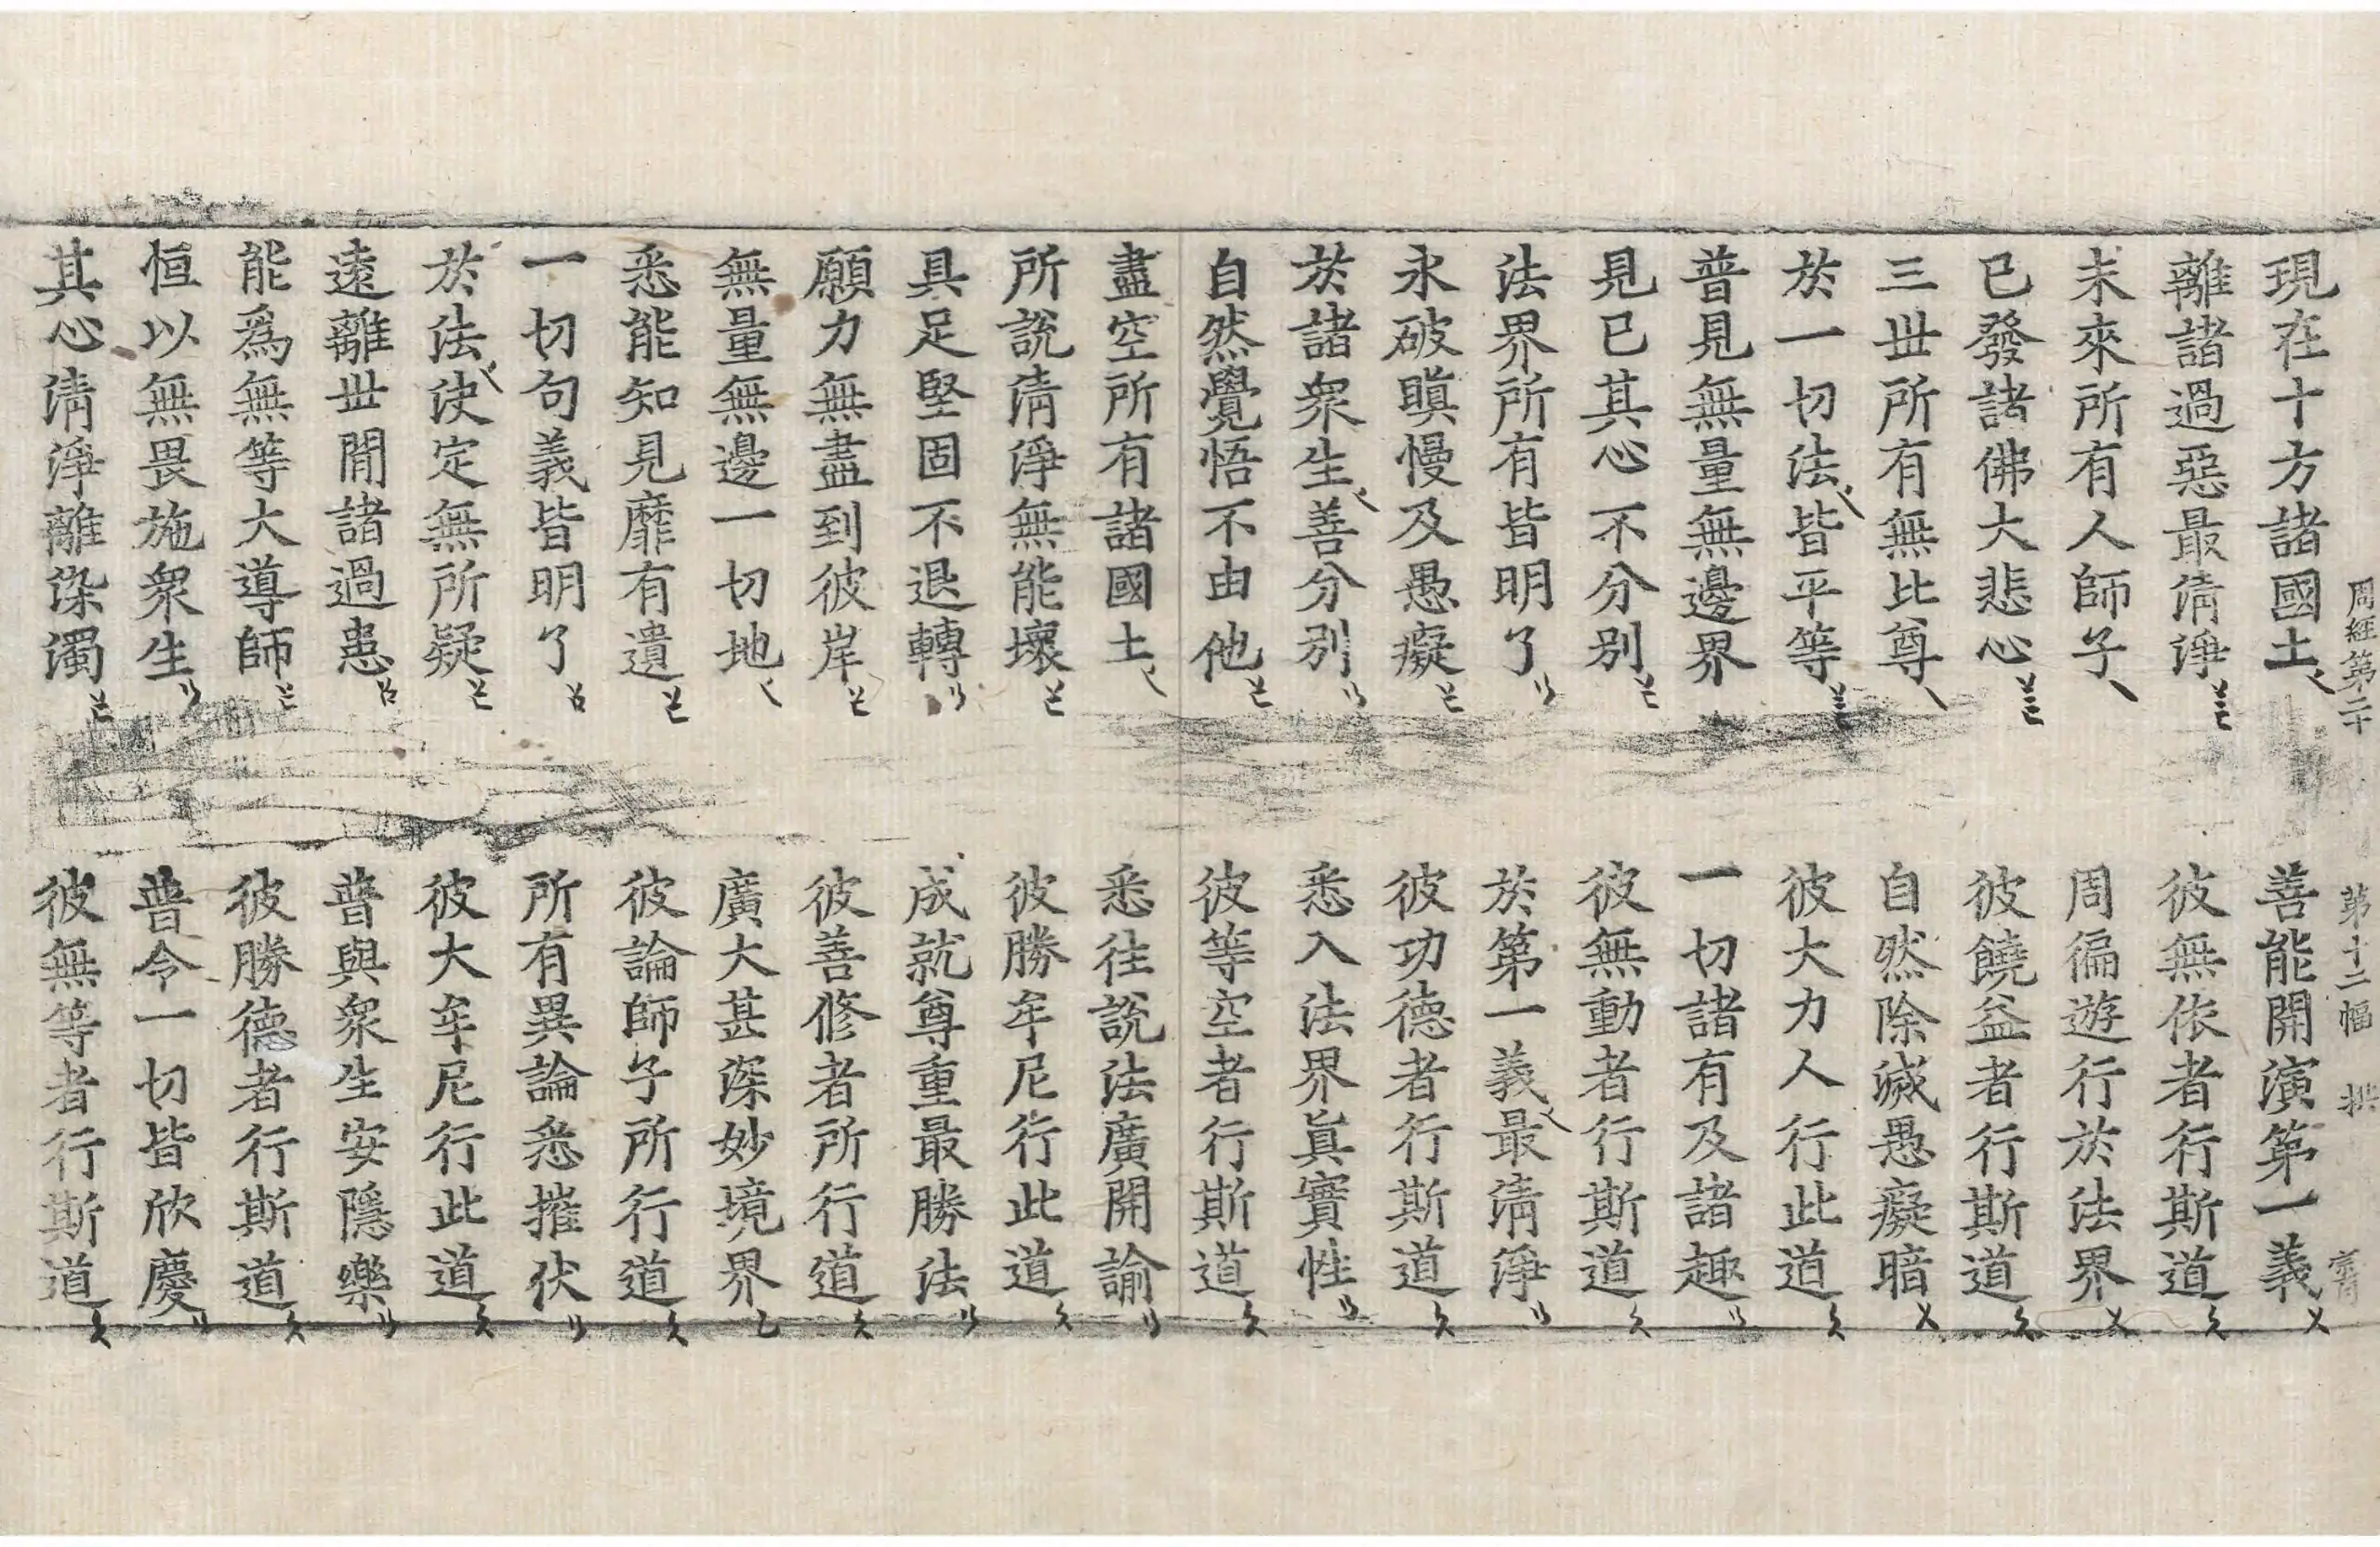 周經第二十 第十二幅
現在十方諸國土 善能開演第一義
離諸過惡最清淨 彼無依者行斯道
未來所有人師子 周徧遊行於法界
已發諸佛大悲心 彼饒益者行斯道
三世所有無比尊 自然除滅愚癡暗
於一切法皆平等 彼大力人行此道
普見無量無邊界 一切諸有及諸趣
見已其心不分別 彼無動者行斯道
法界所有皆明了 於第一義最清淨
永破瞋慢及愚癡 彼功德者行斯道
於諸衆生善分別 悉入法界眞實性
自然覺悟不由他 彼等空者行斯道
盡空所有諸國土 悉往說法廣開諭
所說清淨無能壞 彼勝牟尼行此道
具足堅固不退轉 成就尊重最勝法
願力無盡到彼岸 彼善修者所行道
無量無邊一切地 廣大甚深妙境界
悉能知見靡有遺 彼論師子所行道
一切句義皆明了 所有異論悉摧伏
於法決定無所疑 彼大牟尼行此道
遠離世間諸過患 普與衆生安隱樂
能爲無等大導師 彼勝德者行斯道
恒以無畏施衆生 普令一切皆欣慶
其心清淨離染濁 彼無等者行斯道